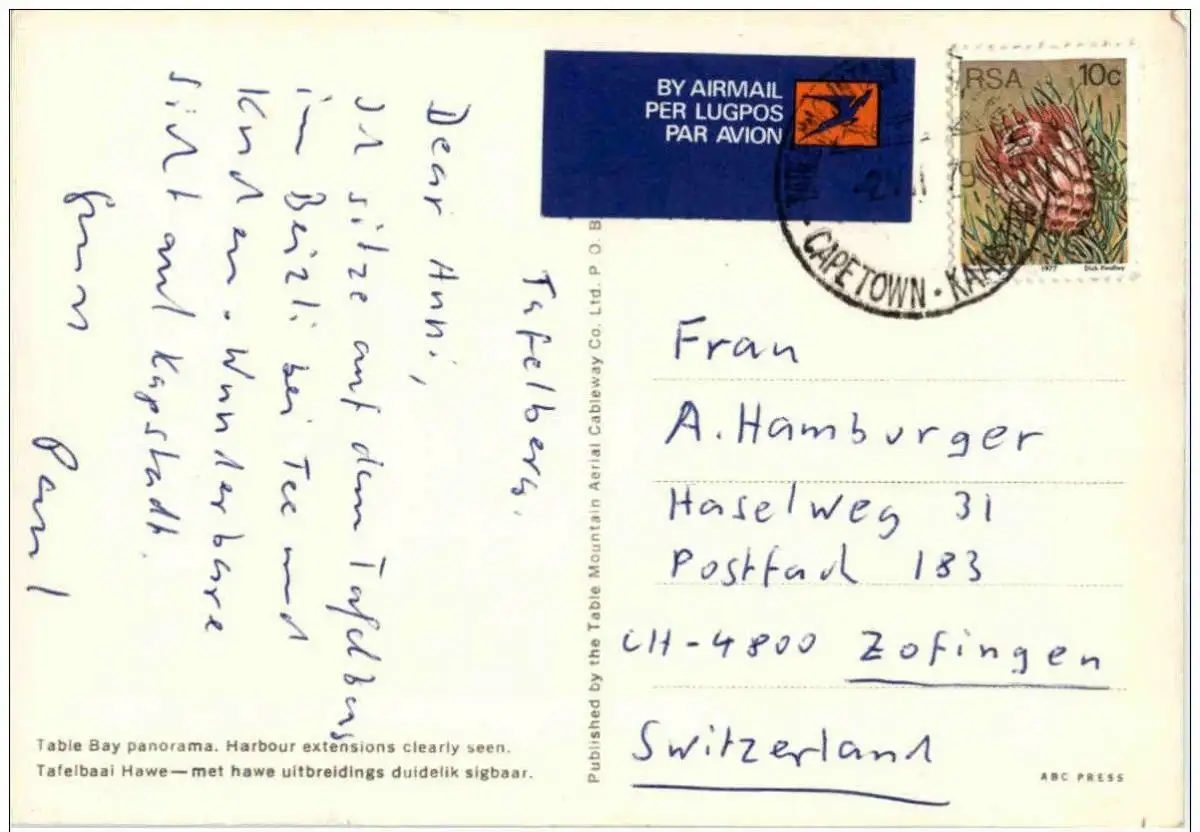 BY AIRMAIL
PER LUGPOS
PAR AVION
RSA 10c
1977 Dick Findlay
-2 VII 79
CAPE TOWN • KAAPSTAD
Tafelberg.
Dear Anni,
Ich sitze auf dem Tafelberg
im Beizli bei Tee und
Kuchen. Wunderbare
Sicht auf Kapstadt.
Paul
Published by the Table Mountain Aerial Cableway Co. Ltd. P.O. B
Frau
A. Hamburger
Haselweg 31
Postfach 183
CH-4800 Zofingen
Switzerland
Table Bay panorama. Harbour extensions clearly seen.
Tafelbaai Hawe—met hawe uitbreidings duidelik sigbaar.
ABC PRESS